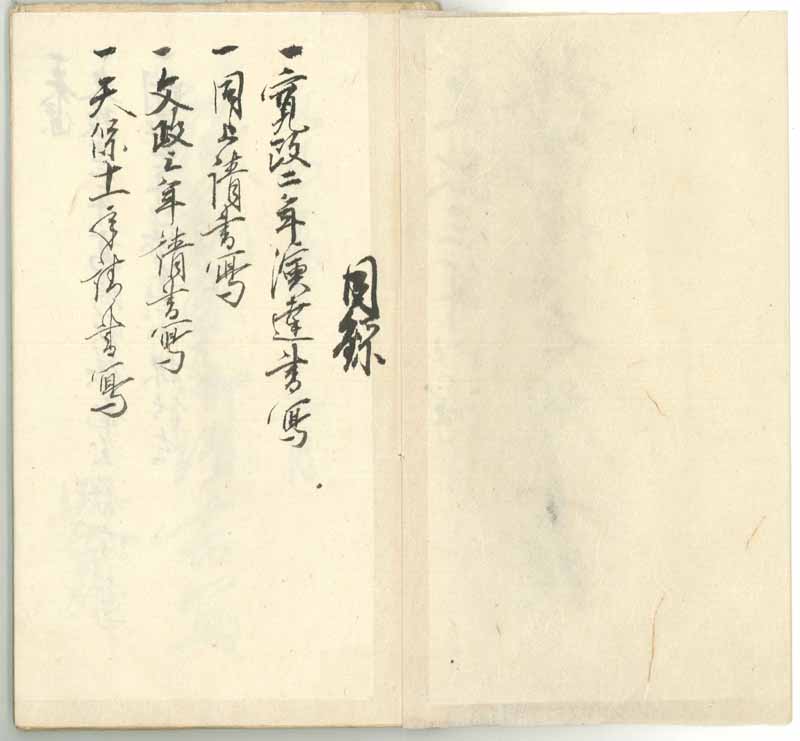 目録
一寛政二年演達書写
一同上請書写
一文政三年請書写
一天保十一年請書写